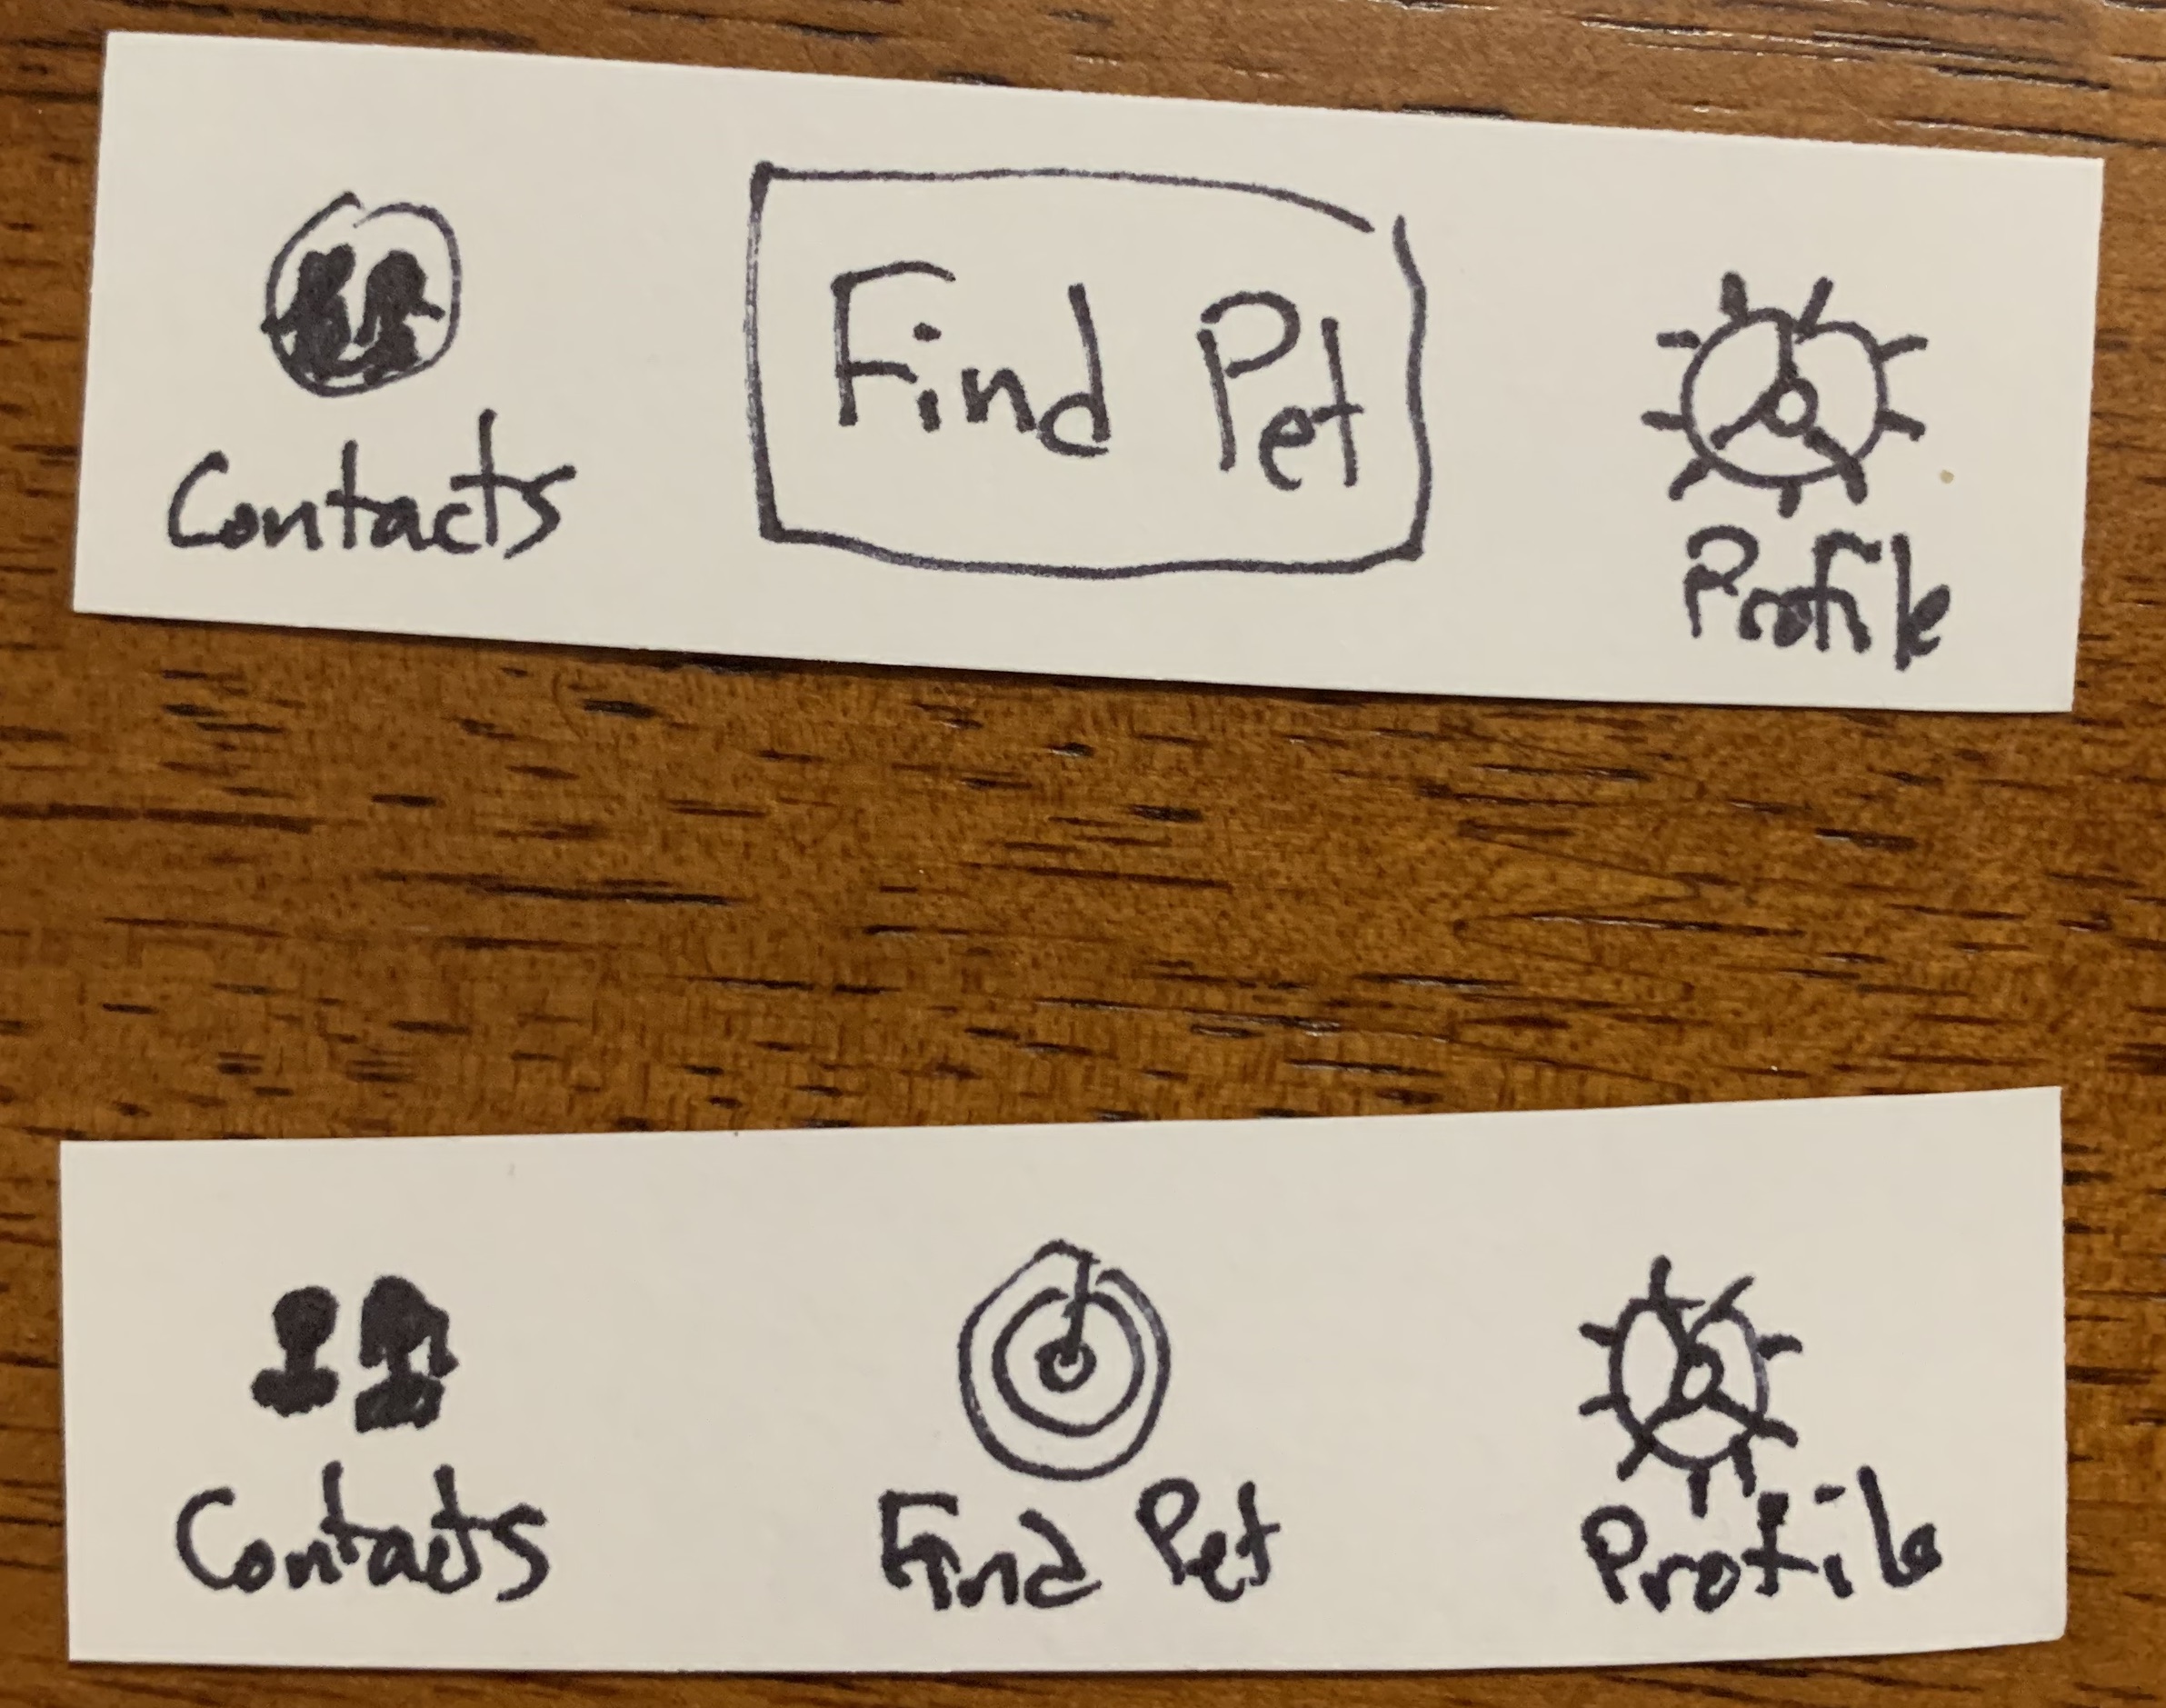 Contacts
Find Pet
Profile
Contacts
Find Pet
Profile